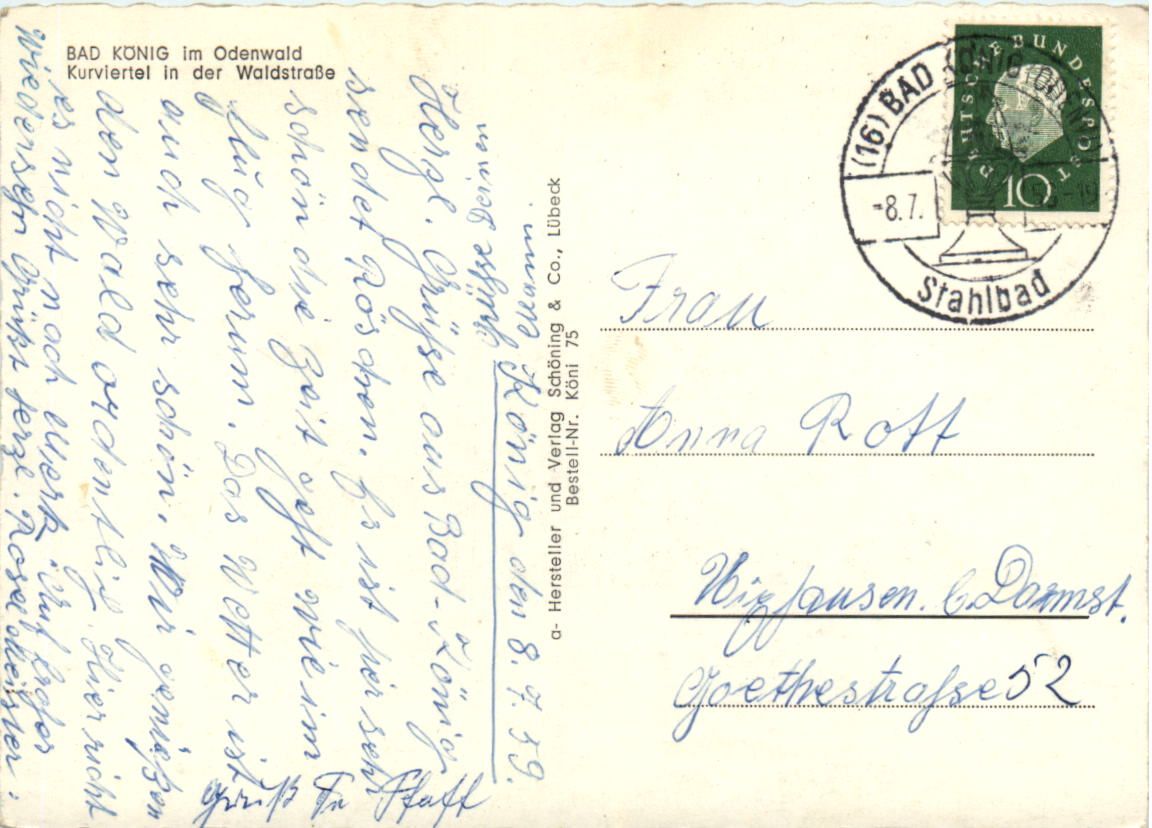 BAD KÖNIG im Odenwald
Kurviertel in der Waldstraße
König den 8.7.59.
Herzl. Grüße aus Bad-König
sendet Röschen. Es ist hier sehr
schön die Zeit geht wie im
flug herum. Das Wetter ist
auch sehr schön. Wir genießen
den Wald ordentlich. Hier richt
es nicht nach Merk. Auf froher
Wiedersehn Grüßt herzl. Rosel
Gruß Fr Pfaff
a- Hersteller und Verlag Schöning & Co., Lübeck
Bestell-Nr. Köni 75
DEUTSCHE BUNDESPOST
10
(16) BAD KÖNIG (ODENW)
-8.7.
Stahlbad
Frau
Anna Rott
Wixhausen. b. Darmst.
Goethestraße 52